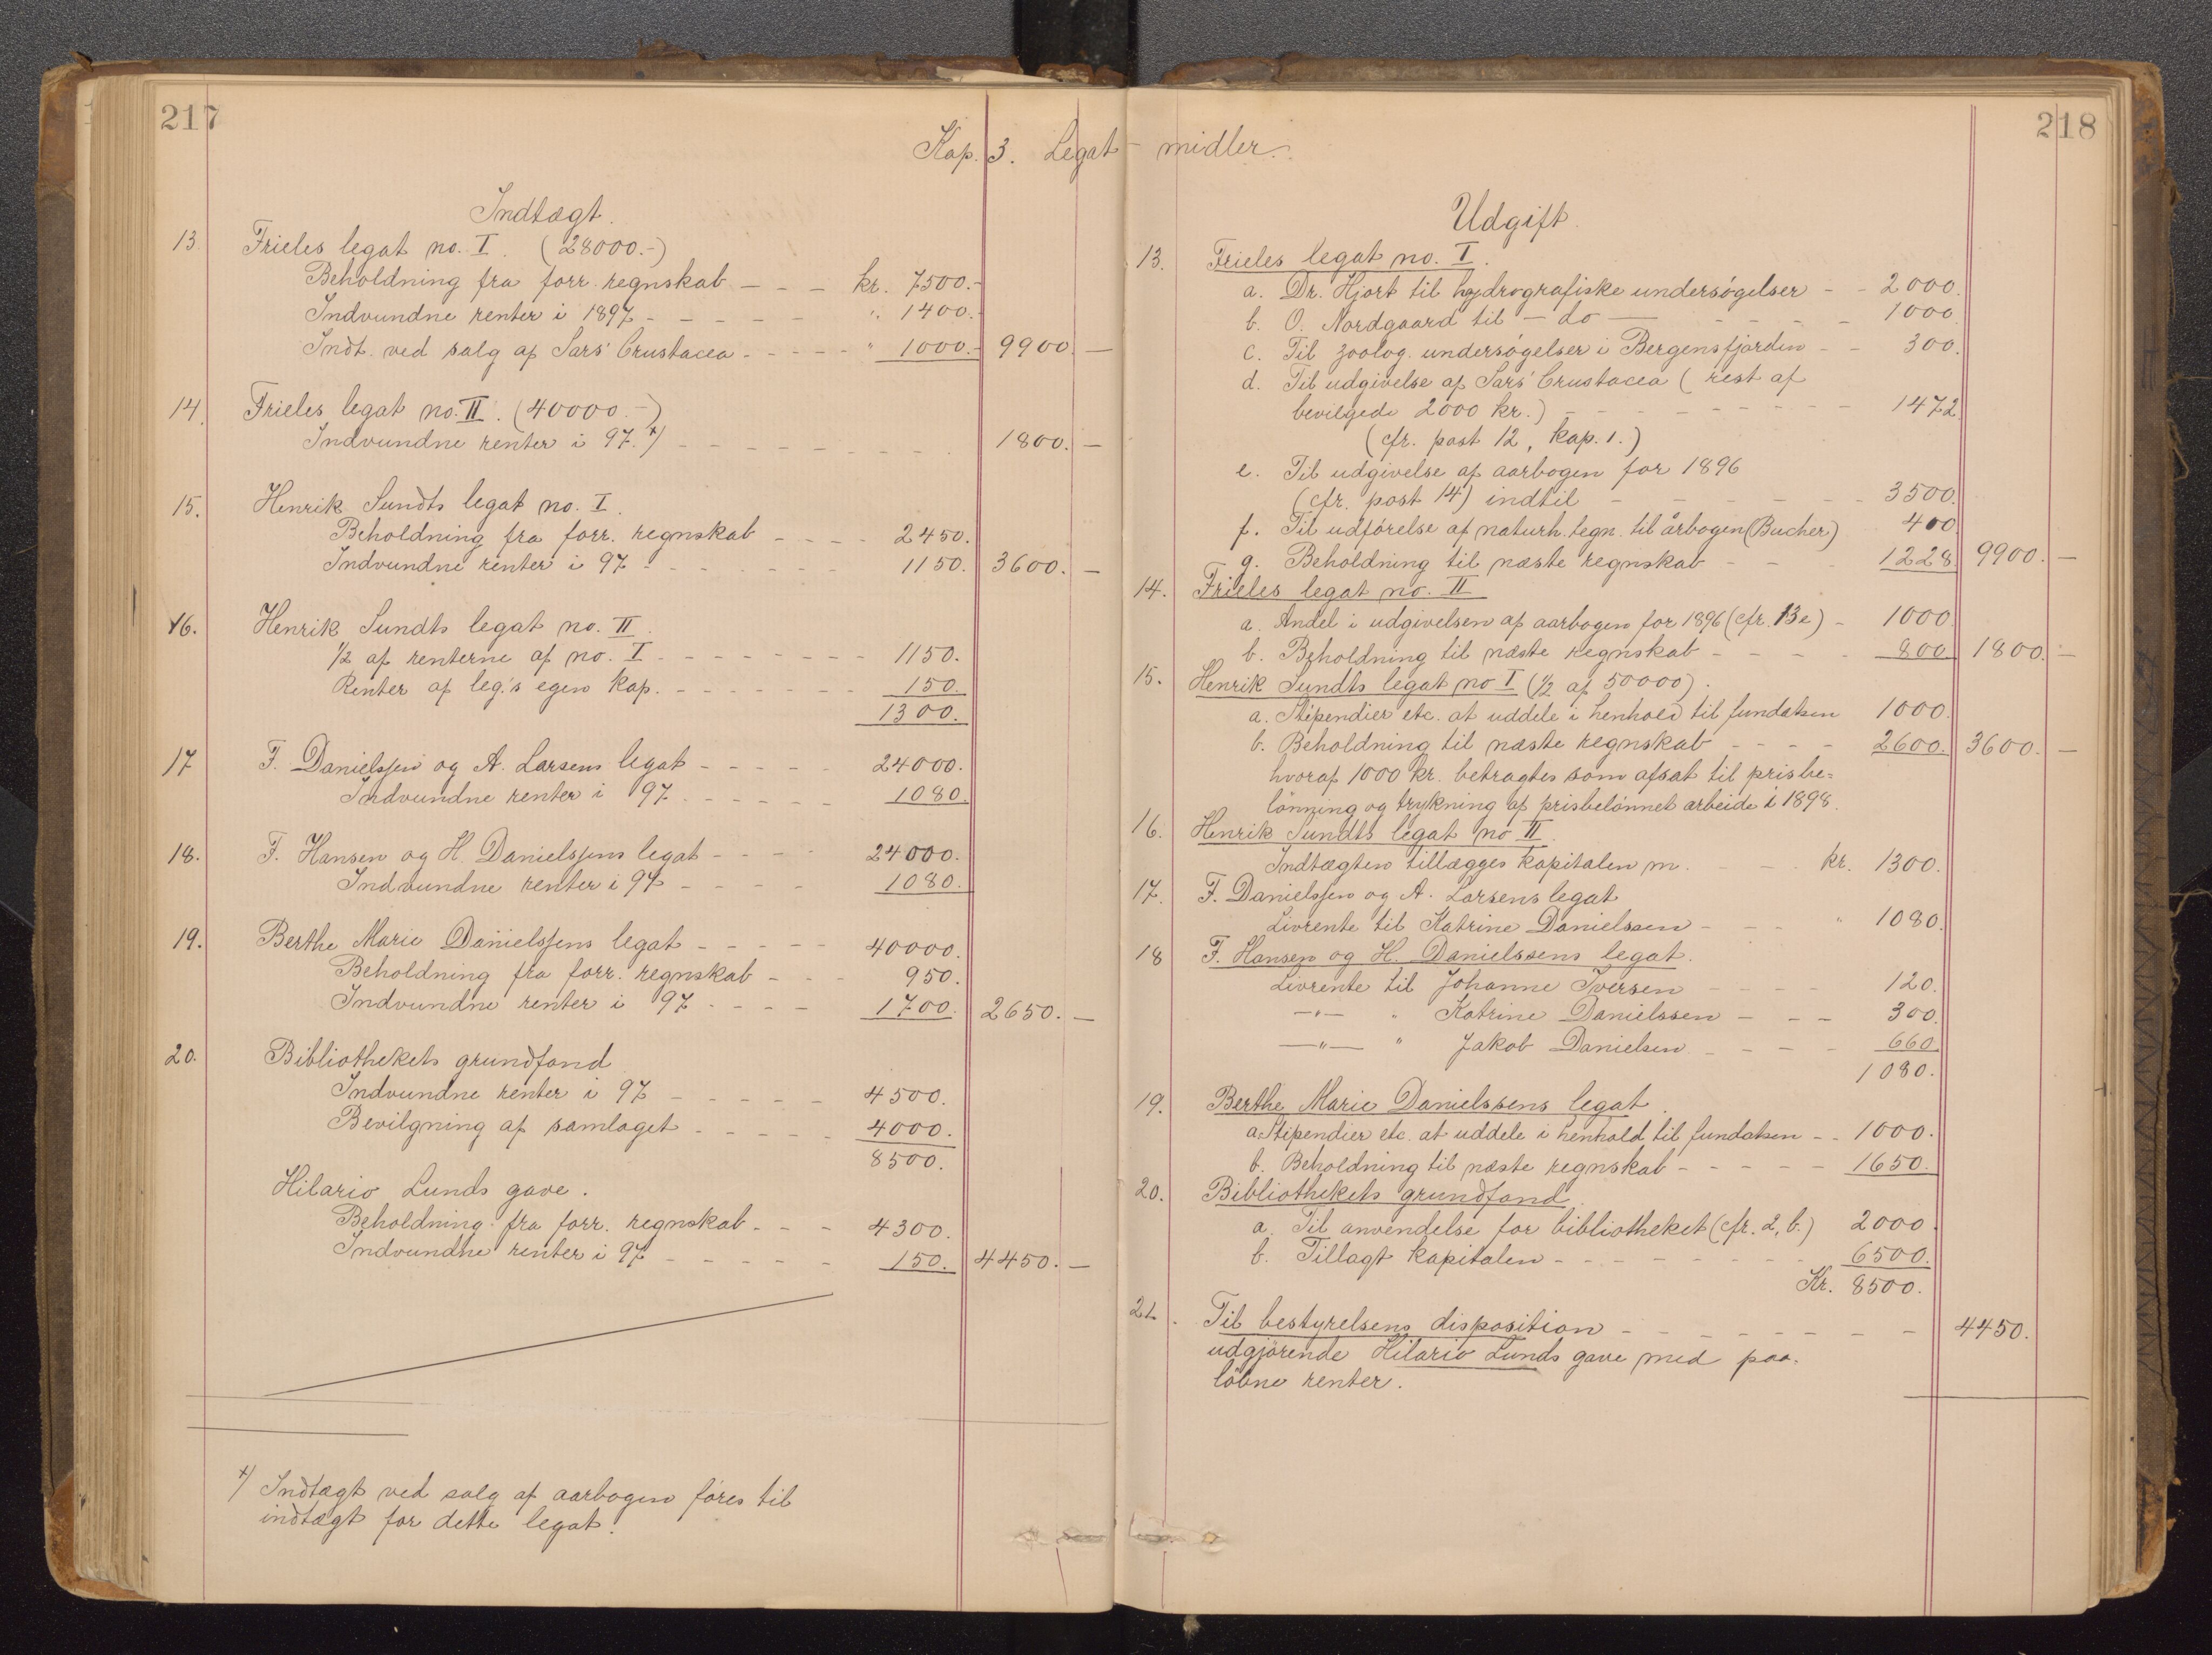 217
Kap. 3. Legat-
Indtægt.
13. Frieles legat no. I. (28000.-)
Beholdning fra forr. regnskab - - - kr. 7500.-
Indvundne renter i 1897 - - - - - " 1400.-
Indt. ved salg af Sars' Crustacea - - - - - " 1000.- 9900. -
14. Frieles legat no. II. (40000.-)
Indvundne renter i 97. *) - - - - - - - 1800. -
15. Henrik Sundts legat no. I.
Beholdning fra forr. regnskab - - - - 2450.
Indvundne renter i 97 - - - - - - 1150. 3600. -
16. Henrik Sundts legat no. II.
1/2 af renterne af no. I - - - - - - - - 1150.
Renter af leg.'s egen kap. - - - - - - - 150.
1300.
17 F. Danielssen og A. Larsens legat - - - - - 24000.
Indvundne renter i 97 - - - - - - 1080.
18. F. Hansen og H. Danielssens legat - - - - 24000.
Indvundne renter i 97 - - - - 1080.
19. Berthe Marie Danielssens legat - - - - - 40000.
Beholdning fra forr. regnskab - - - 950.
Indvundne renter i 97 - - - - 1700. 2650. -
20. Bibliothekets grundfond
Indvundne renter i 97 - - - - - 4500.
Bevilgning af samlaget - - - - - 4000.
8500.
Hilario Lunds gave.
Beholdning fra forr. regnskab - - - 4300.
Indvundne renter i 97 - - - - - 150. 4450. -
*) Indtægt ved salg af aarbogen føres til
indtægt for dette legat.
218
midler.
Udgift.
13. Frieles legat no. I.
a. Dr. Hjort til hydrografiske undersøgelser - - 2000.
b. O. Nordgaard til - do - - - - - 1000.
c. Til zoolog. undersøgelser i Bergensfjorden - - 300.
d. Til udgivelse af Sars' Crustacea (rest af
bevilgede 2000 kr.) - - - - - - - - - 1472.
(cfr. post 12, kap. 1.)
e. Til udgivelse af aarbogen for 1896
(cfr. post 14) indtil - - - - - - - 3500.
f. Til udførelse af naturh. tegn. til årbogen (Bucher) 400
g. Beholdning til næste regnskab - - - 1228. 9900. -
14. Frieles legat no. II
a. Andel i udgivelsen af aarbogen for 1896 (cfr. 13e) - 1000
b. Beholdning til næste regnskab - - - - 800 1800. -
15. Henrik Sundts legat no I (1/2 af 50000).
a. Stipendier etc. at uddele i henhold til fundatsen 1000.
b. Beholdning til næste regnskab - - - - 2600. 3600. -
hvoraf 1000 kr. betragtes som afsat til prisbe=
lønning og trykning af prisbelønnet arbeide i 1898.
16. Henrik Sundts legat no II.
Indtægten tillægges kapitalen m. - - kr. 1300.
17. F. Danielssen og A. Larsens legat
Livrente til Katrine Danielssen - - - " 1080.
18 F. Hansen og H. Danielssens legat.
Livrente til Johanne Iversen - - - - 120.
-"- " Katrine Danielssen - - - 300.
-"- " Jakob Danielsen - - - - 660
1080.
19. Berthe Marie Danielssens legat.
a. Stipendier etc. at uddele i henhold til fundatsen - - 1000.
b. Beholdning til næste regnskab - - - - - 1650.
20. Bibliothekets grundfond.
a. Til anvendelse for bibliotheket (cfr. 2, b.) 2000.
b. Tillagt kapitalen - - - - - - - 6500.
Kr. 8500.
21. Til bestyrelsens disposition - - - - - - - - 4450.
udgjørende Hilario Lunds gave med paa-
løbne renter.